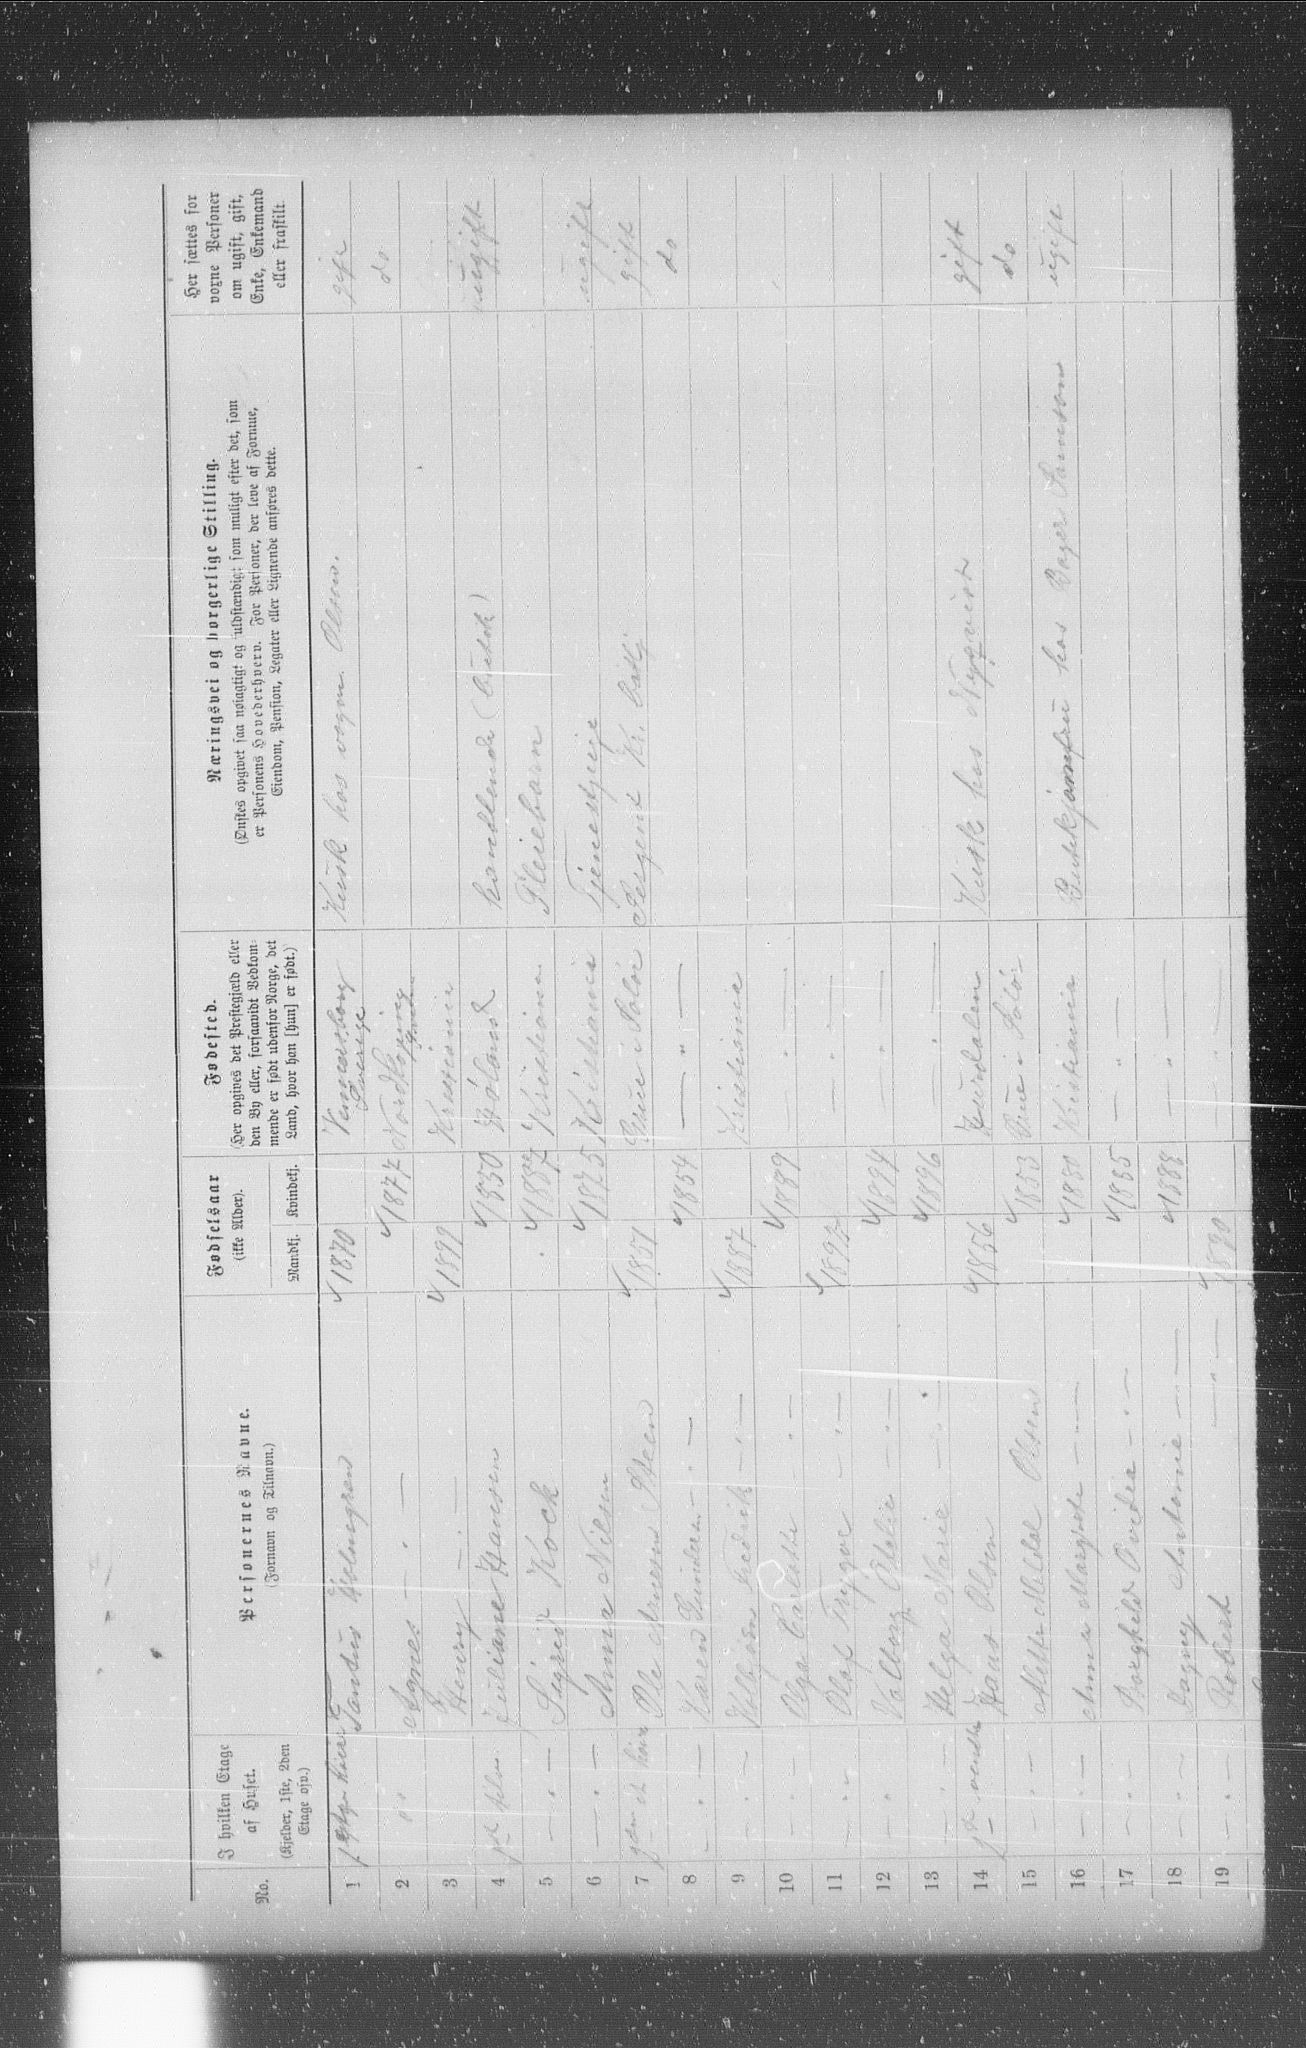 No.
I hvilken Etage
af Huset.
(Kjelder, 1ste, 2den
Etage osv.)
Personernes Navne.
(Fornavn og Tilnavn.)
Fødselsaar
(ikke Alder).
Mandkj. Kvindekj.
Fødested.
(Her opgives det Prestegjæld eller
den By eller, forsaavidt Vedkom-
mende er født udenfor Norge, det
Land, hvor han [hun] er født.)
Næringsvei og borgerlige Stilling.
(Ønskes opgivet saa nøiagtigt og uldstændigt som muligt efter det, som
er Personens Hovederhverv. For Personer, der leve af Formue,
Eiendom, Pension, Legater eller Lignende anføres dette.
Her sættes for
voxne Personer
om ugift, gift,
Enke, Enkemand
eller fraskilt
1 Holmgren 1870 Sverige Kusk hos vogm. Olsen. gift
2 do Agnes — " — 1877 Nordkøping do
3 Henry — " — 1899 Kristiania
4 Juliane Hansen 1850 Høland handlende ugift
5 — " — Sigrid Kock 1887 Kristiania Pleiebarn
6 — " — Anna Nilsen 1875 Kristiania Tjenestepige ugift
7 Ole Steen 1851 Solør Sergent gift
8 — " — Karen — " — 1854 — " — do
9 — " — Kolbjørn Fredrik — " — 1887 Kristiania
10 — " — Olga — " — 1889 — " —
11 — " — Olaf Trygve — " — 1892 — " —
12 — " — Valborg — " — 1894 — " —
13 — " — Helga Marie — " — 1896 — " —
14 Hans Olsen 1856 Kusk hos Nyqvist gift
15 — " — Mette Olsen 1853 Solør do
16 — " — Anna Margrete — " — 1880 Kristiania Butikjomfru hos Bager Samson ugift
17 — " — Borghild — " — 1885 — " —
18 — " — Dagny Antonie — " — 1888 — " —
19 — " — Robert — " — 1890 — " —